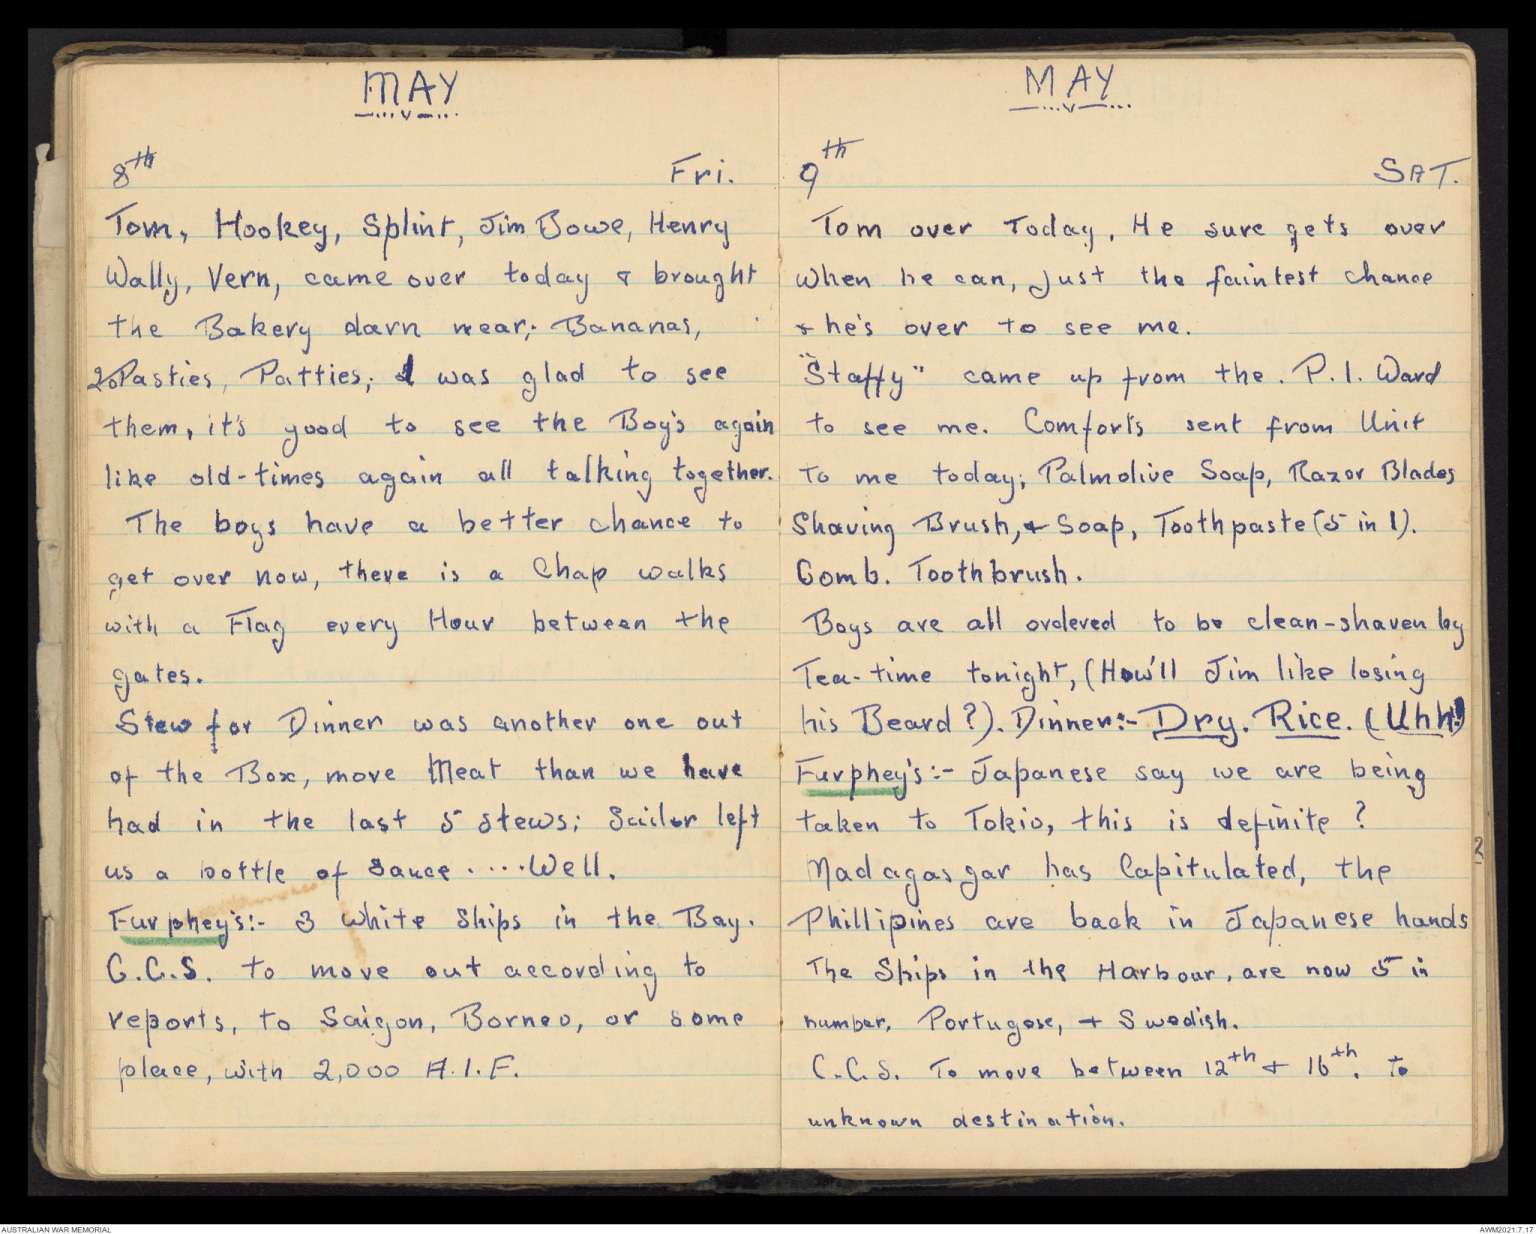 MAY
8th Fri.
Tom, Hookey, Splint, Jim Bowe, Henry
Wally, Vern, came over today & brought
the Bakery darn near; Bananas,
2 Pasties, Patties; I was glad to see
them, it's good to see the Boy's again
like old-times again all talking together.
The boys have a better chance to
get over now, there is a Chap walks
with a Flag every Hour between the
gates.
Stew for Dinner was another one out
of the Box, more Meat than we have
had in the last 5 stews; Sailor left
us a bottle of Sauce .... Well.
Furphey's:- 3 White Ships in the Bay.
C.C.S. to move out according to
reports, to Saigon, Borneo, or some
place, with 2,000 A.I.F.
MAY
9th SAT.
Tom over Today, He sure gets over
when he can, just the faintest chance
& he's over to see me.
"Staffy" came up from the. P.I. Ward
to see me. Comforts sent from Unit
to me today; Palmolive Soap, Razor Blades
Shaving Brush, & Soap, Toothpaste (5 in 1).
Comb. Toothbrush.
Boys are all ordered to be clean-shaven by
Tea-time tonight, (How'll Jim like losing
his Beard?). Dinner:- Dry. Rice. (Uhh!)
Furphey's:- Japanese say we are being
taken to Tokio, this is definite?
Madagasgar has Capitulated, the
Phillipines are back in Japanese hands
The Ships in the Harbour, are now 5 in
number, Portugese, + Swedish.
C.C.S. To move between 12th + 16th. to
unknown destination.
2
AUSTRALIAN WAR MEMORIAL
AWM2021.7.17